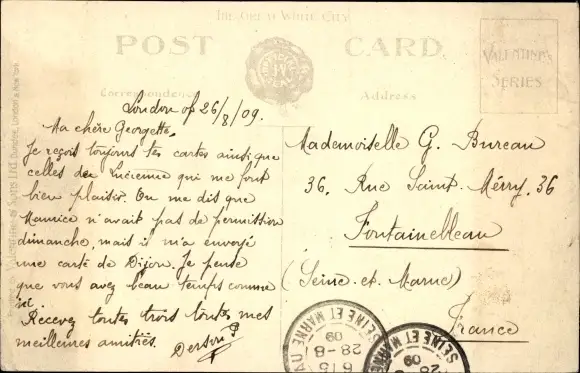 THE GREAT WHITE CITY
POST CARD
VALENTINE'S
SERIES
Correspondence
Address
London of 26/8/09.
Ma chère Georgette,
Je reçois toujours tes cartes ainsi que
celles de Lucienne qui me font
bien plaisir. On me dis que
Maurice n'avait pas de permission
dimanche, mais il m'a envoyé
une carte de Dijon. Je pense
que vous avez beau temps comme
ici.
Recevez toutes trois toutes mes
meilleures amitiés.
Mademoiselle G. Bureau
36. Rue Saint. Méry. 36
Fontainebleau
(Seine. et. Marne)
France
SEINE ET MARNE
28-8
09
SEINE ET MARNE
09